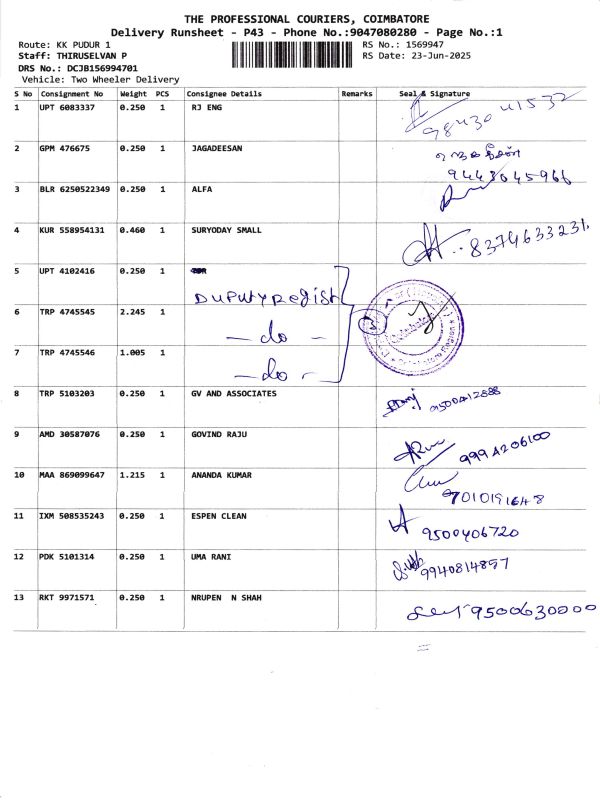 THE PROFESSIONAL COURIERS, COIMBATORE
Delivery Runsheet - P43 - Phone No.:9047080280 - Page No.:1
Route: KK PUDUR 1 RS No.: 1569947
Staff: THIRUSELVAN P RS Date: 23-Jun-2025
DRS No.: DCJB156994701
Vehicle: Two Wheeler Delivery
S No Consignment No Weight PCS Consignee Details Remarks Seal & Signature
1 UPT 6083337 0.250 1 RJ ENG 9843041532
2 GPM 476675 0.250 1 JAGADEESAN
9443045966
3 BLR 6250522349 0.250 1 ALFA
4 KUR 558954131 0.460 1 SURYODAY SMALL 8374633231
5 UPT 4102416 0.250 1
DUPUTY Regist
6 TRP 4745545 2.245 1 - do -
7 TRP 4745546 1.005 1 - do -
8 TRP 5103203 0.250 1 GV AND ASSOCIATES 9500412888
9 AMD 30587076 0.250 1 GOVIND RAJU 9994206100
10 MAA 869099647 1.215 1 ANANDA KUMAR 7010191648
11 IXM 508535243 0.250 1 ESPEN CLEAN 9500406720
12 PDK 5101314 0.250 1 UMA RANI 9940814857
13 RKT 9971571 0.250 1 NRUPEN N SHAH 9500630000